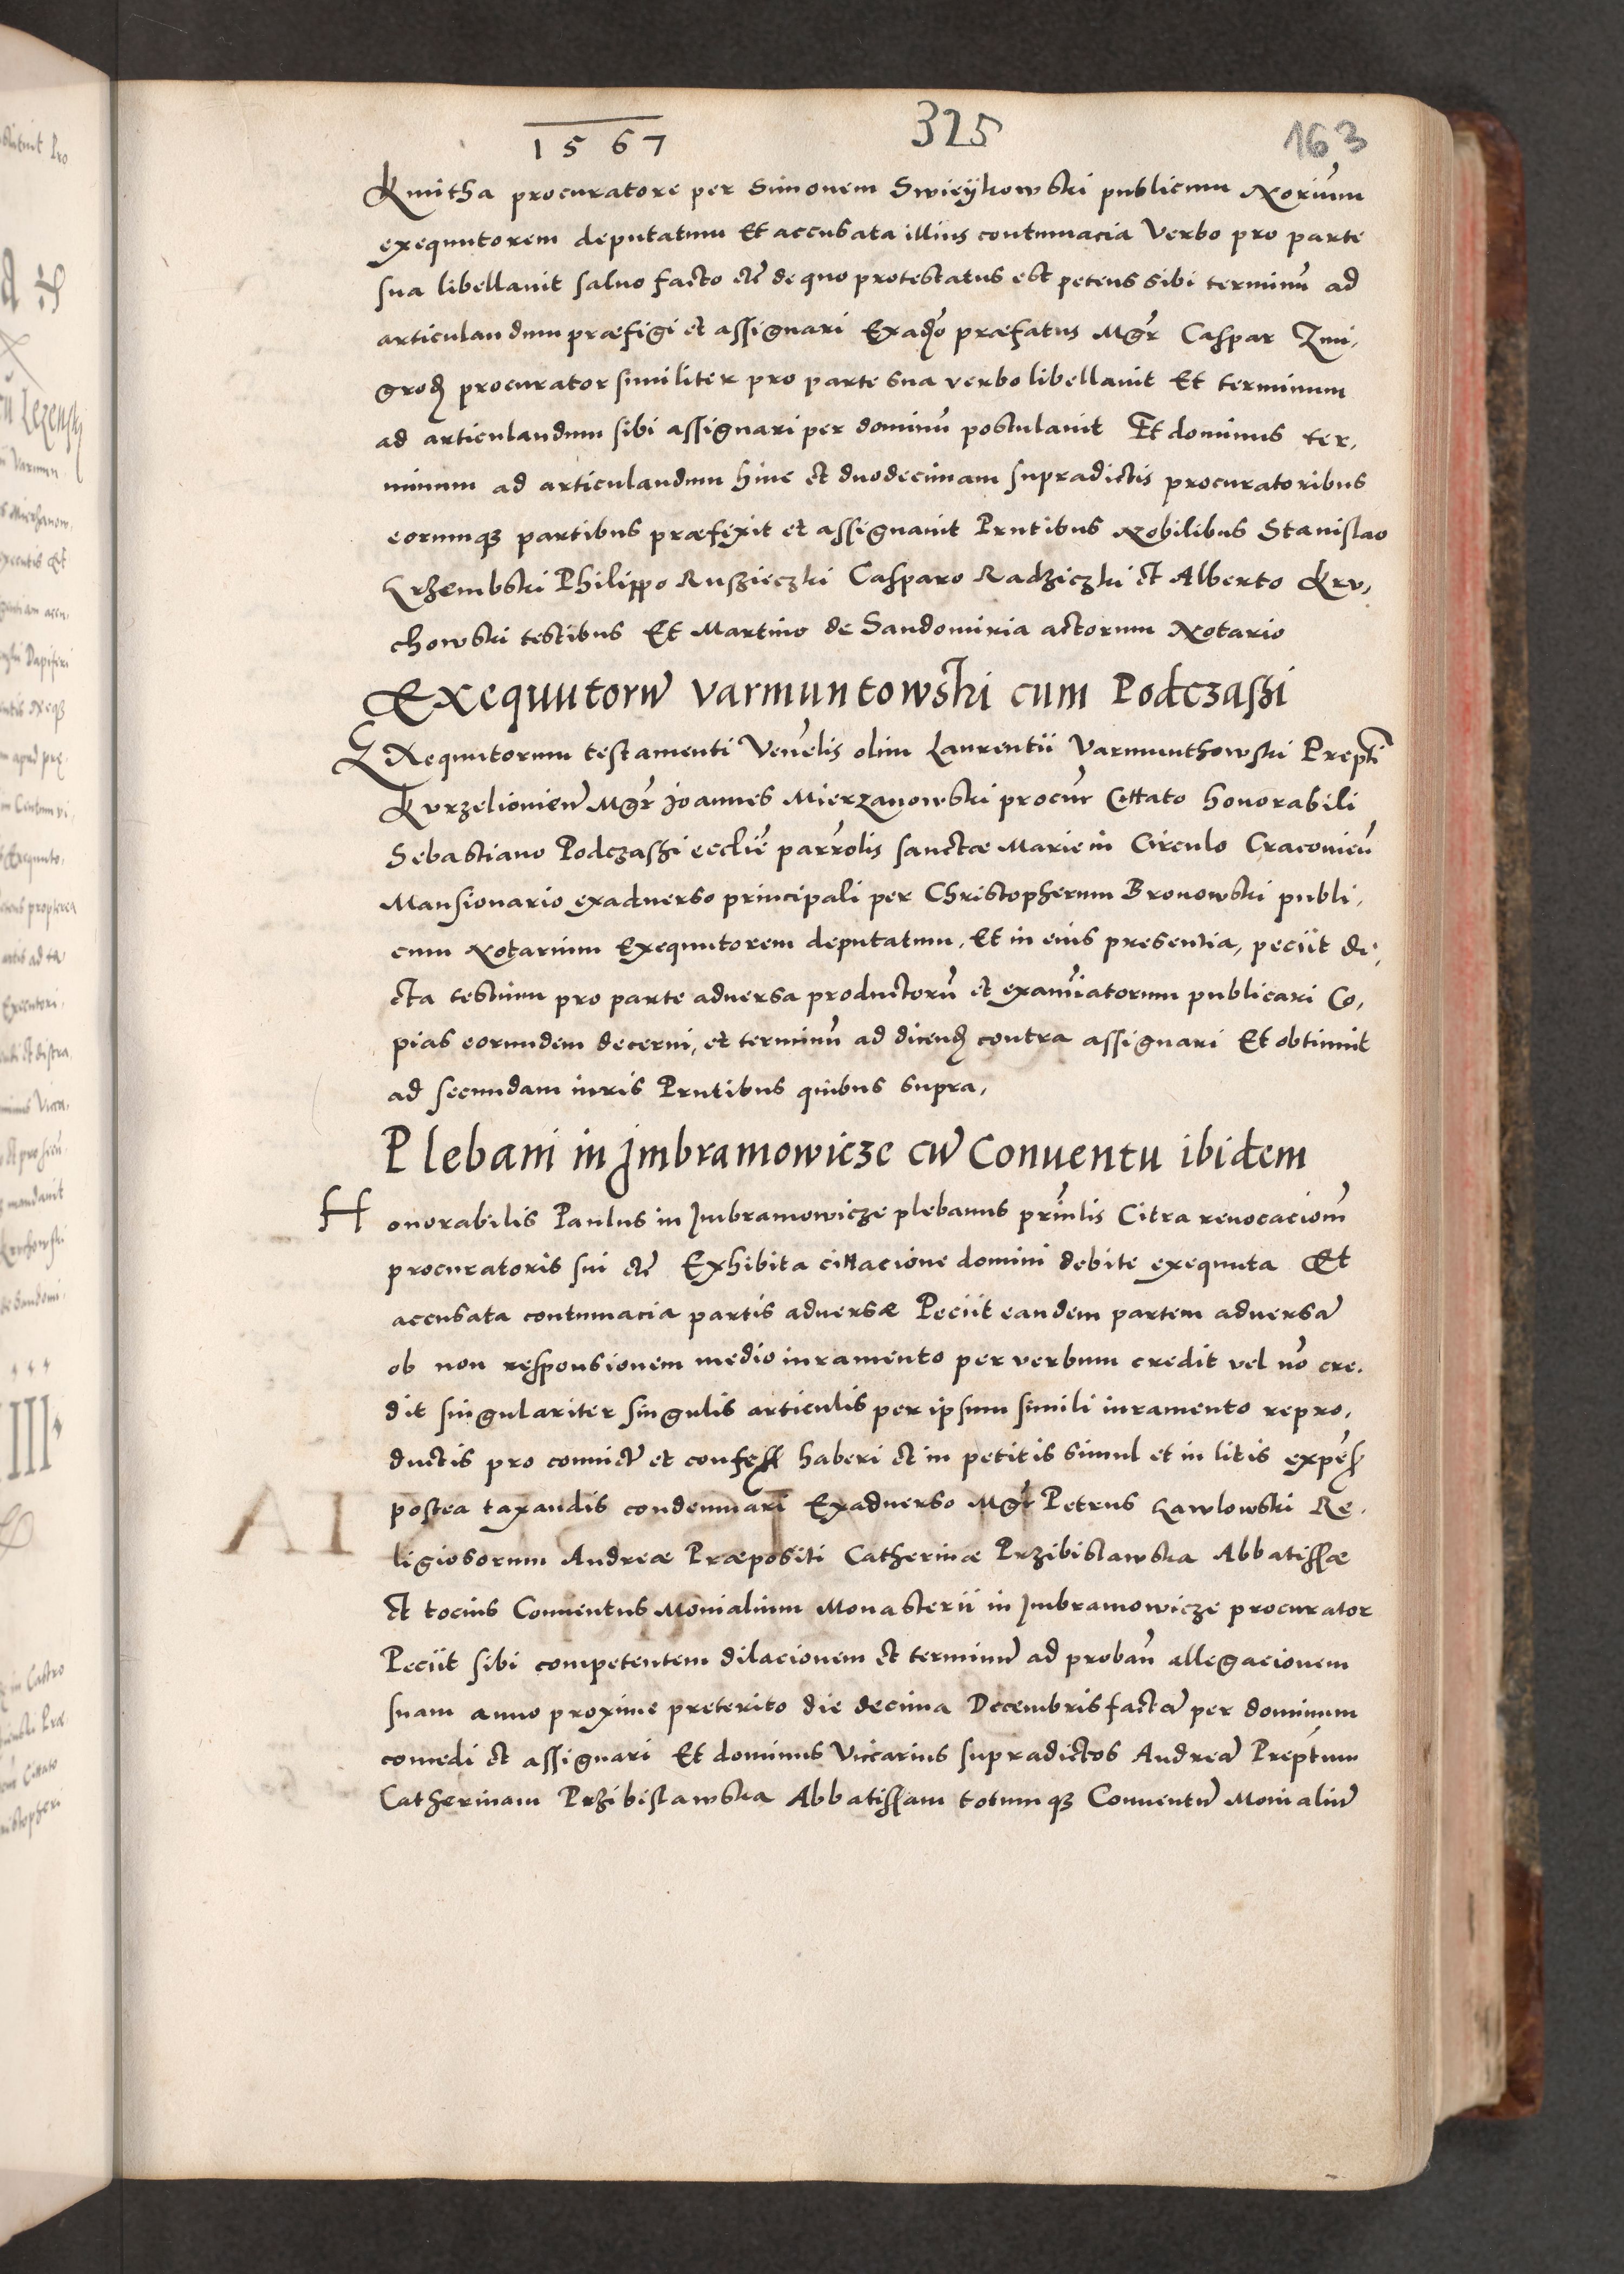 1567
325
163
Kmitha procuratore per Simonem Swieykowski publicum Norium̃
exequutorem deputatum Et accusata illius contumacia Verbo pro parte
sua libellauit saluo facto etc̃ de quo protestatus est petens sibi terminũ ad
articulandum præfigi et assignari Exadṽo præfatus Mgr̃ Caspar Zmi,
grod procurator similiter pro parte sua verbo libellauit Et terminum
ad articulandum sibi assignari per dominũ postulauit Et dominus ter,
minum ad articulandum hinc et duodecimam supradictis procuratoribus
eorumqꝫ partibus præfixit et assignauit Prñtibus Nobilibus Stanislao
Krzembski Philippo Ruszieczki Casparo Radziczki et Alberto Kru,
chowski testibus Et Martino de Sandomiria actorum Notario
Exequutorũ Varmuntowski cum Podczaszi
EXequutorum testamenti Veñelis olim Laurentii Varmunthowski Prepti
Kurzelionieñ Mgr̃ Joannes Mierzanowski procur̃ Cittato honorabili
Sebastiano Podczaszi ecclie parrolis sanctæ Marie in Circulo Cracouieñ
Mansionario exaduerso principali per Christopherum Bronowski publi,
cum Notarium Exequutorem deputatum, Et in eius presentia, peciit di,
cta testium pro parte aduersa productorũ et examiatorum publicari Co,
pias eorundem decerni, et terminũ ad dicend contra assignari Et obtinuit
ad secundam iuris Prñtibus quibus supra,
Plebani in Jmbramowicze cũ Conuentu ibidem
Honorabilis Paulus in Jmbramowicze plebanus prinlis Citra reuocacioñ
procuratoris sui etc̃ Exhibita cittacione domini debite exequuta Et
accusata contumacia partis aduersæ Peciit eandem partem aduersã
ob non responsionem medio iuramento per verbum credit vel nõ cre,
dit singulariter singulis articulis per ipsum simili iuramento repro,
ductis pro conuict̃ et confess haberi et in petitis simul et in litis expeñ
postea taxandis condemnari Exaduerso Mgr̃ Petrus Lawlowski Re,
ligiosorum Andreæ Præpositi Catherinæ Przibislawska Abbatissæ
et tocius Conuentus Monialium Monasterii in Jmbramowicze procurator
Peciit sibi competentem dilacionem et terminũ ad probañ allegacionem
suam anno proxime preterito die decima Decembris factã per dominum
concedi et assignari Et dominus Viccarius supradictos Andreã Preptum
Catherinam Przibislawska Abbatissam totumqꝫ Conuentũ Monialiũ